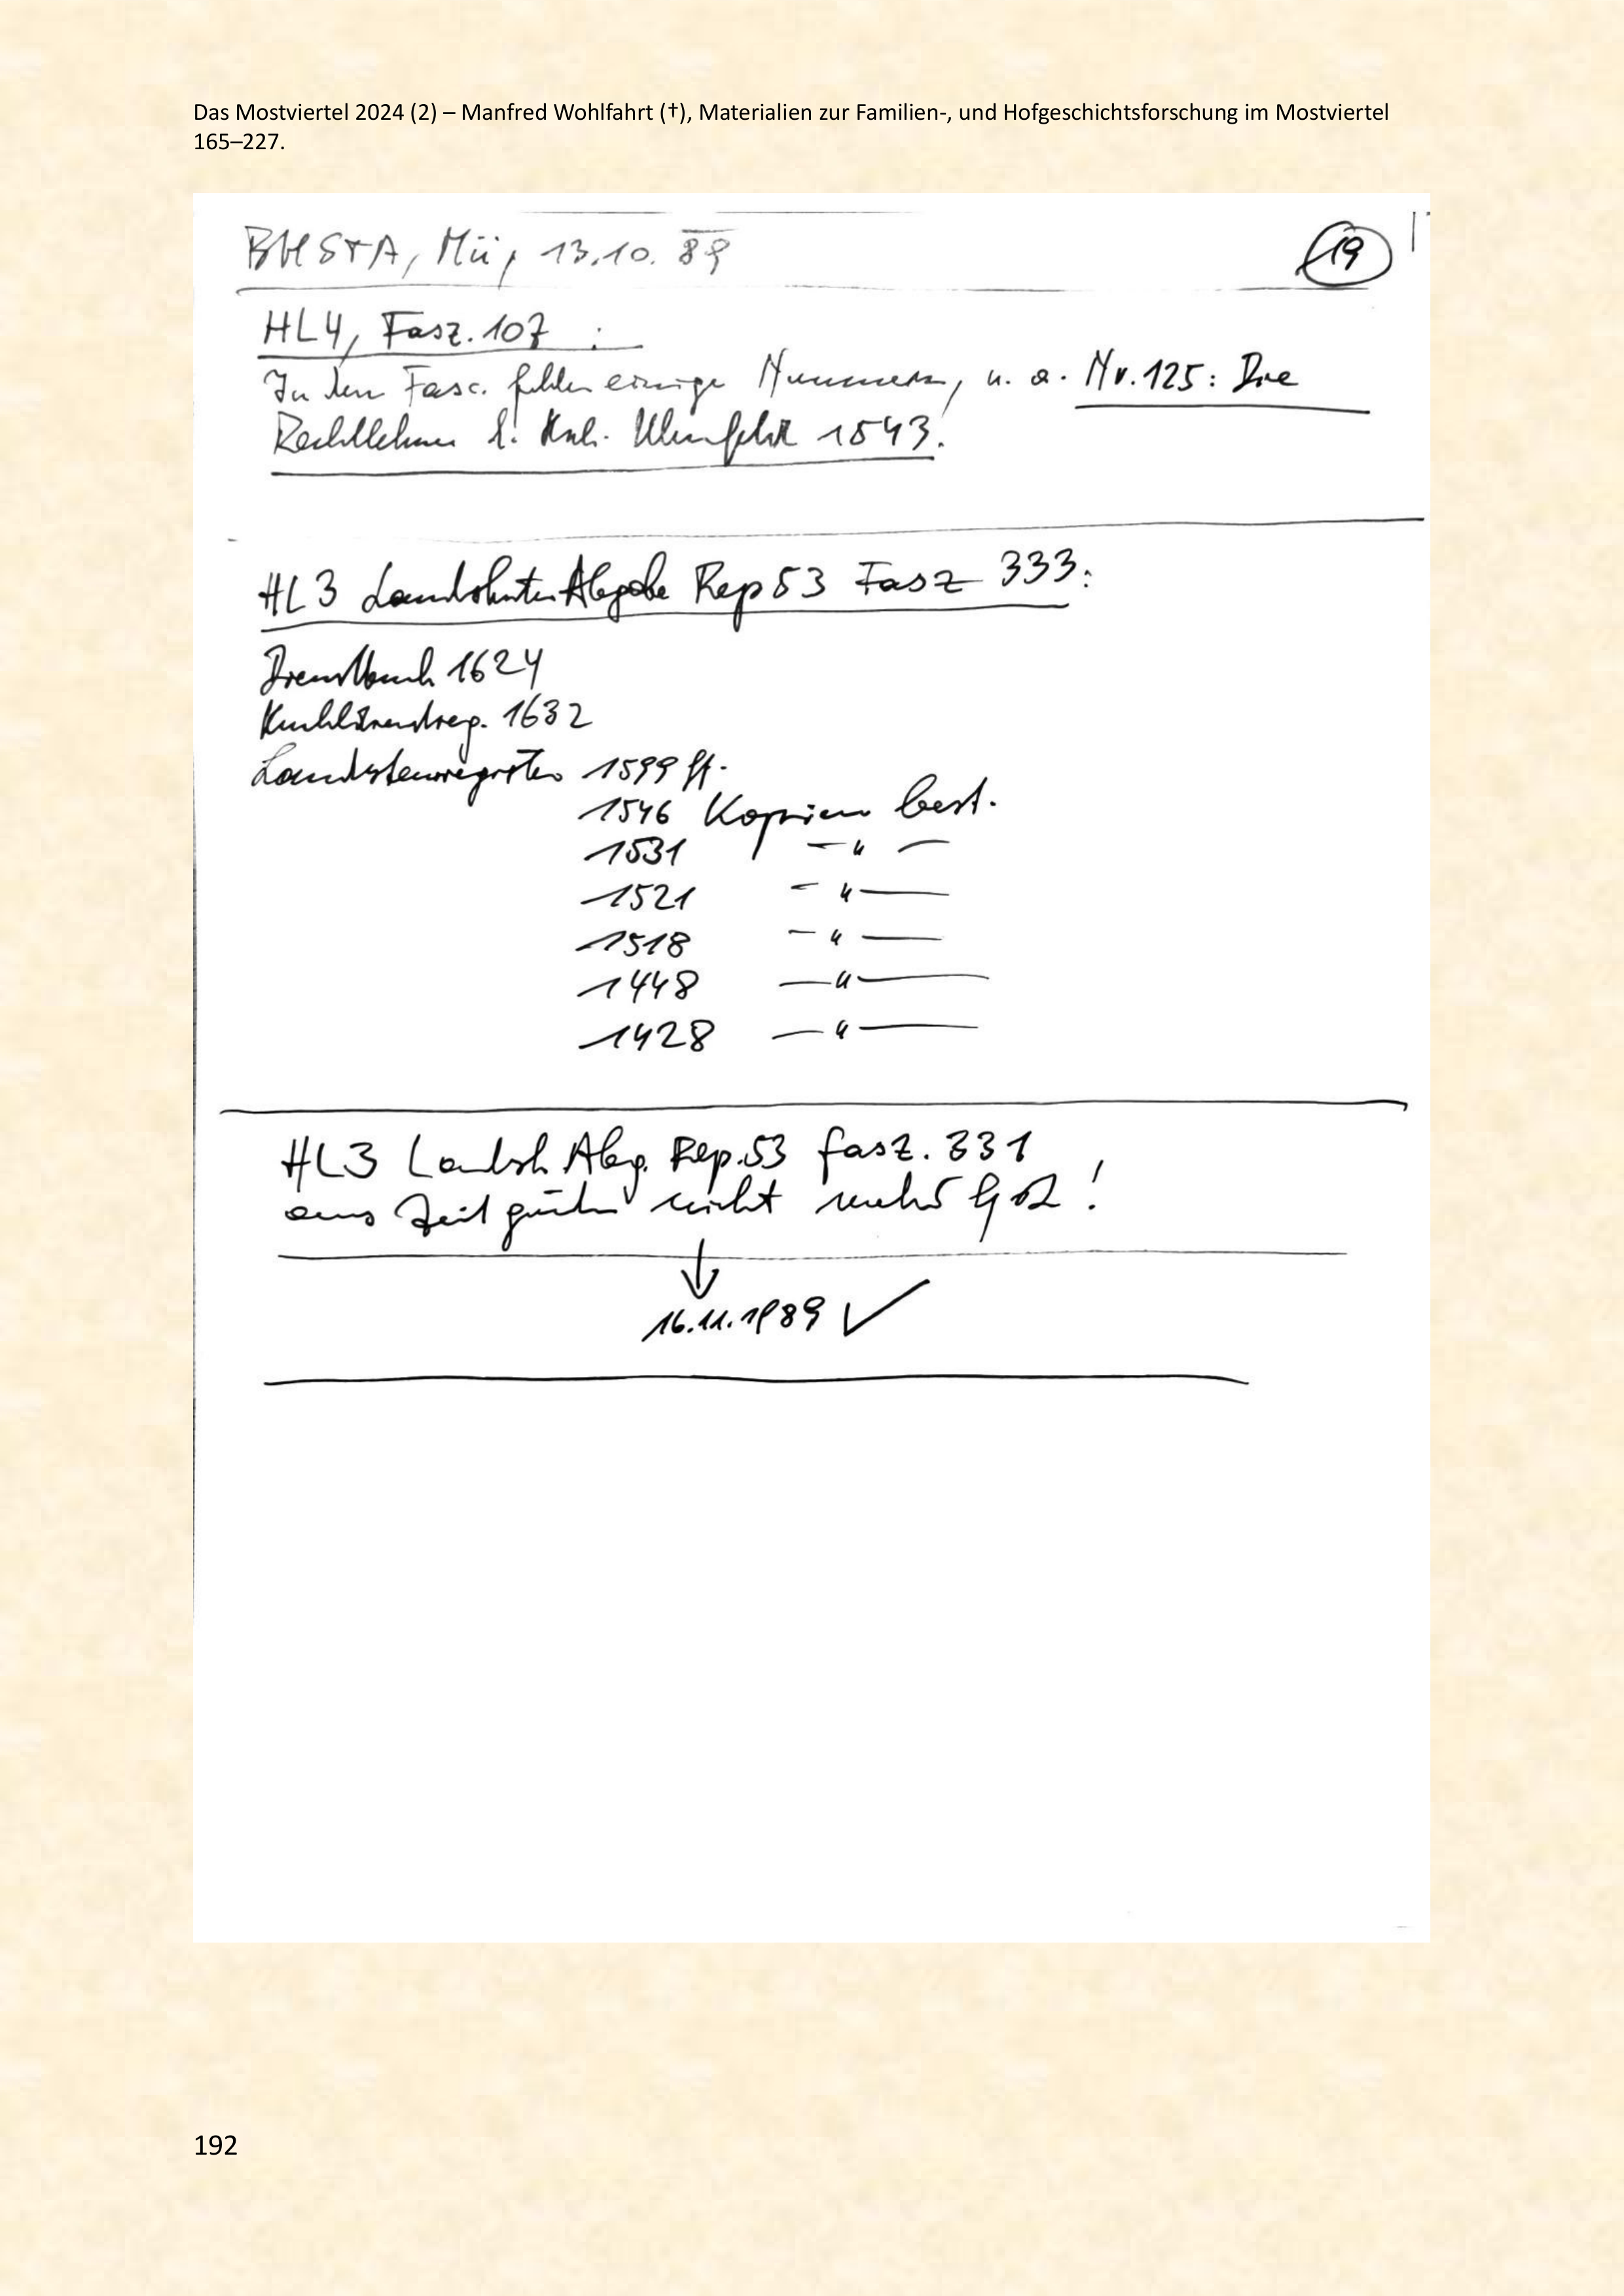 Das Mostviertel 2024 (2) – Manfred Wohlfahrt (†), Materialien zur Familien-, und Hofgeschichtsforschung im Mostviertel
165–227.
BHSTA, Mü, 13.10. 89
19
HL4, Fasz. 107 :
In den Fasc. fehlen einige Nummern, u. a. Nr. 125: Die
Rechtlehen 1543.
HL3 Abgabe Rep 53 Fasz 333:
Dienstbuch 1624
1632
Landsteuerregister 1599 ff.
1546 Kopien best.
1531 — " —
1521 — " —
1518 — " —
1448 — " —
1428 — " —
HL3 Landsh Abg. Rep. 53 fasz. 331
aus Zeitgründen nicht mehr
16.11.1989 ✓
192